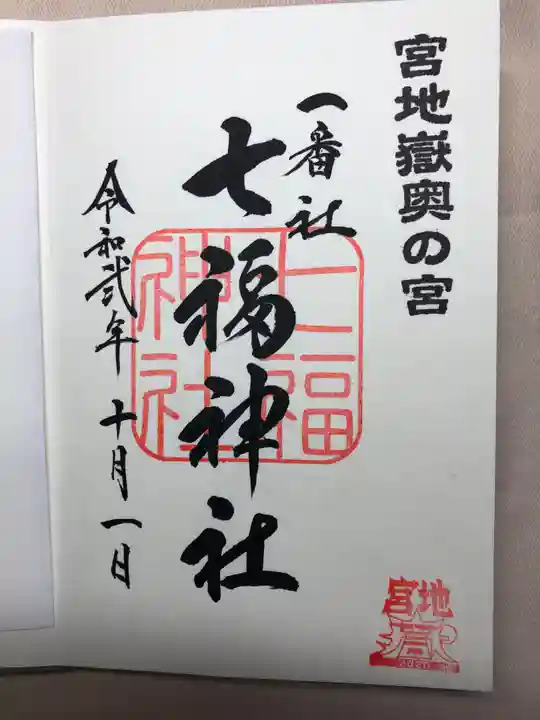 宮地嶽奥の宮
一番社
七福神社
令和弐年十月一日
七福
神社
宮地
嶽